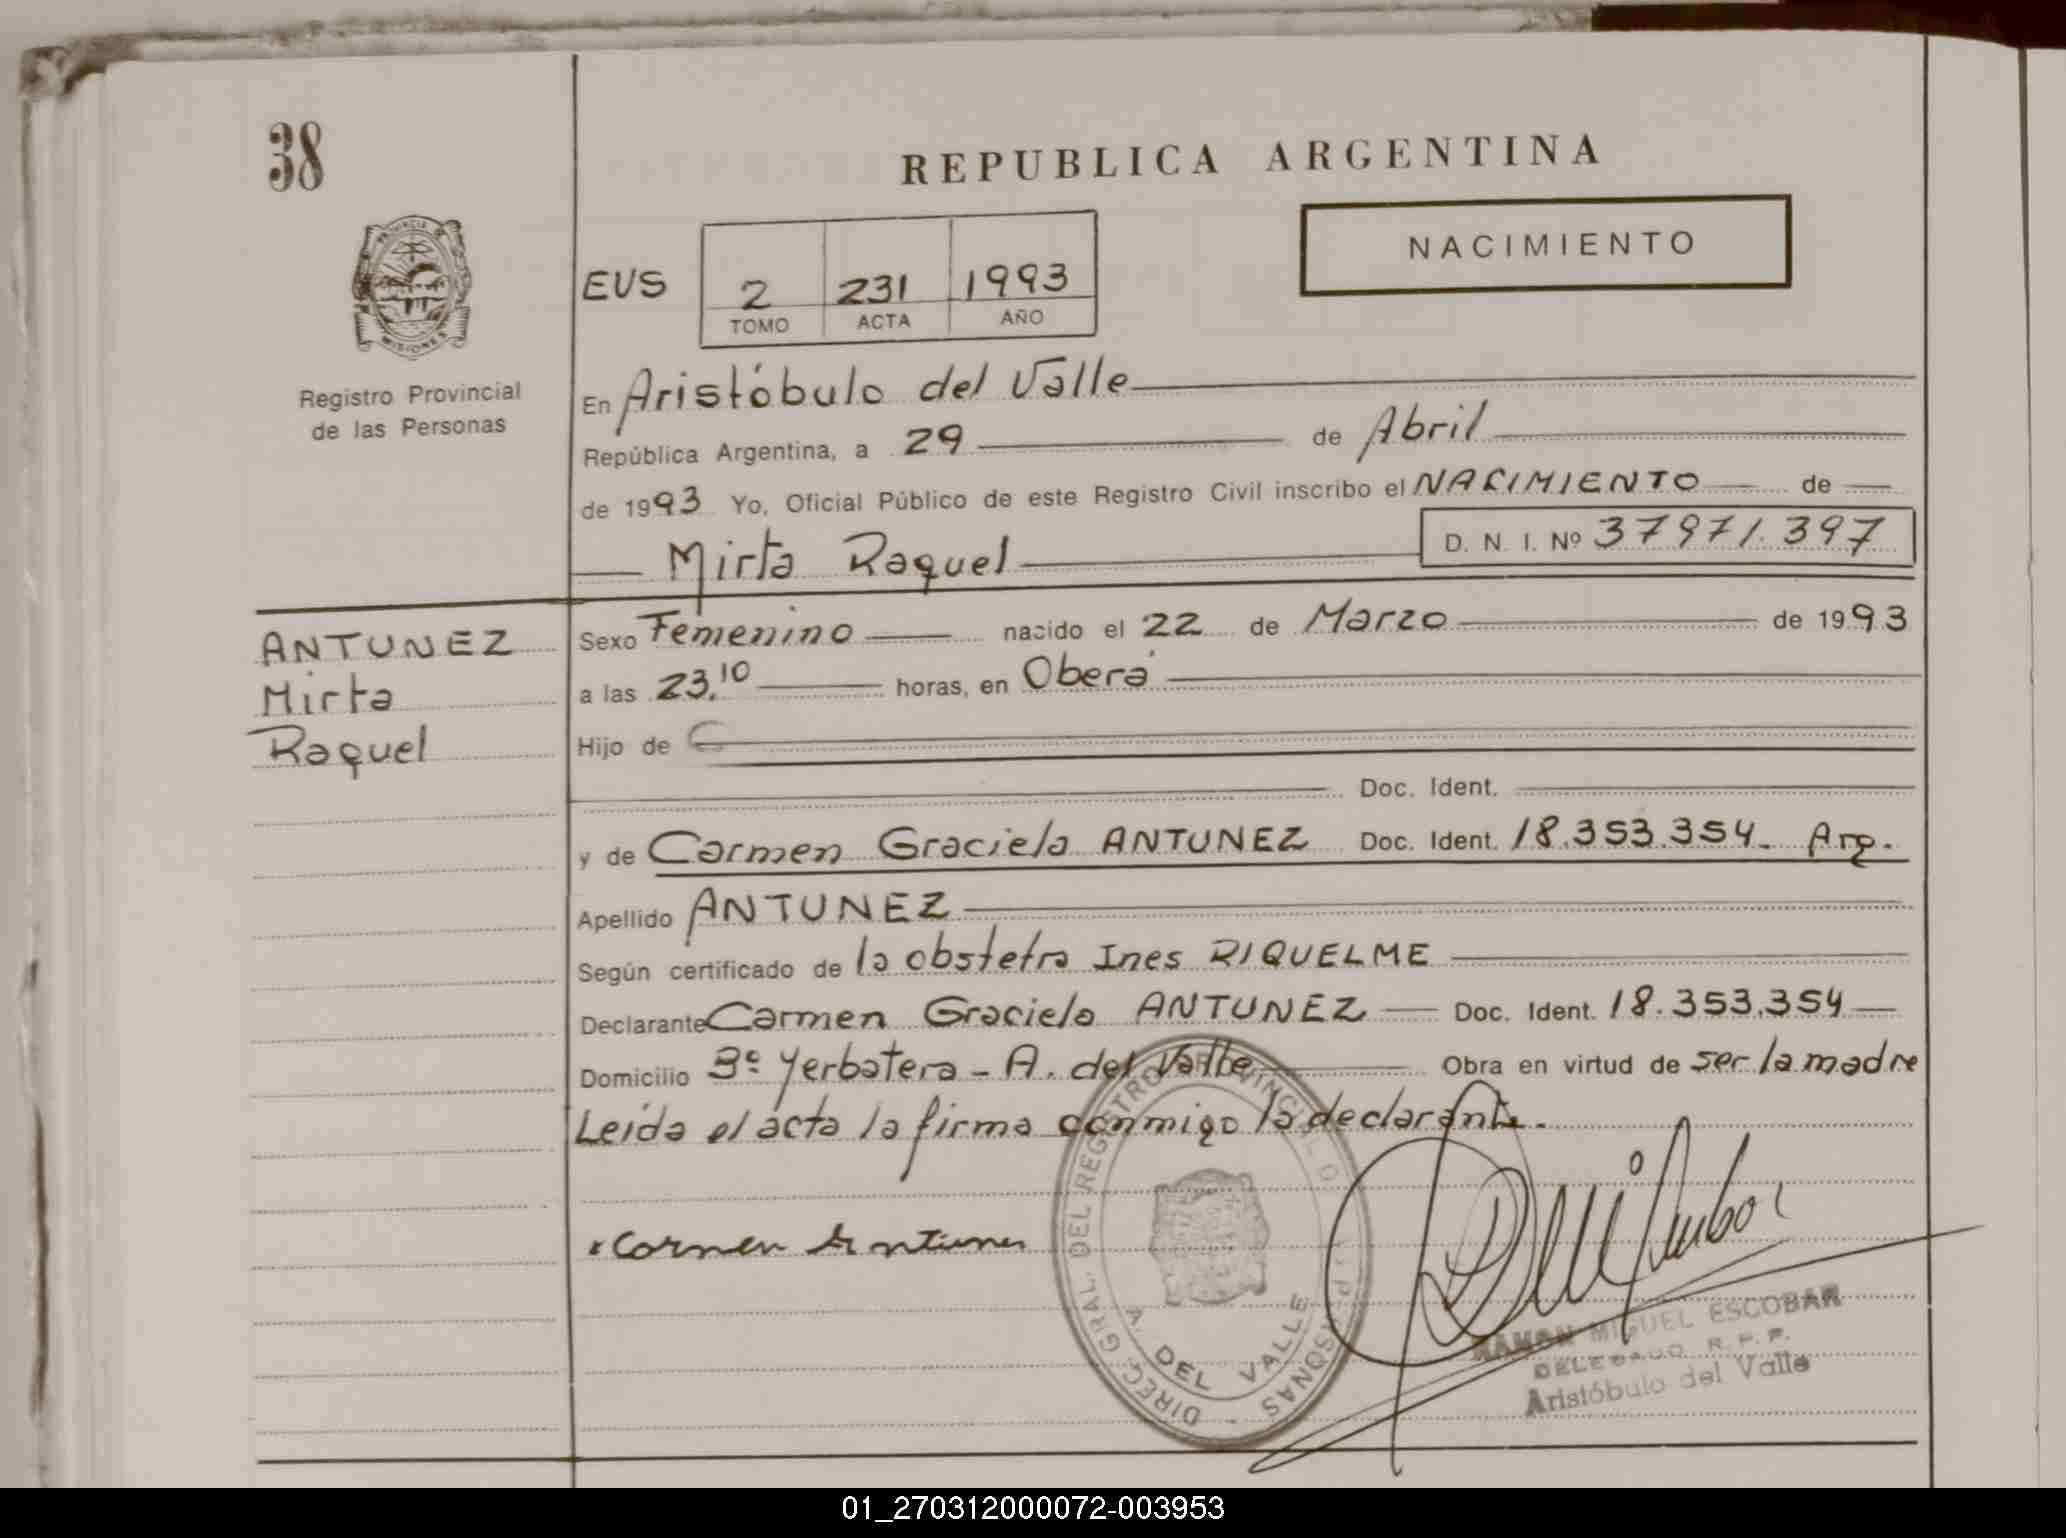 38
REPUBLICA ARGENTINA
NACIMIENTO
PROVINCIA DE
MISIONES
EUS
2 231 1993
TOMO ACTA AÑO
Registro Provincial
de las Personas
En Aristóbulo del Valle
República Argentina, a 29 de Abril
de 1993 Yo, Oficial Público de este Registro Civil inscribo el NACIMIENTO de
Mirta Raquel D. N. I. Nº 37971.397
ANTUNEZ
Mirta
Raquel
Sexo Femenino nacido el 22 de Marzo de 1993
a las 23.10 horas, en Oberá
Hijo de
Doc. Ident.
y de Carmen Graciela ANTUNEZ Doc. Ident. 18.353.354. Arg.
Apellido ANTUNEZ
Según certificado de la obstetra Ines RIQUELME
Declarante Carmen Graciela ANTUNEZ Doc. Ident. 18.353.354
Domicilio 3º Yerbatera - A. del Valle Obra en virtud de ser la madre
Leída el acta la firma conmigo la declarante.
Carmen Antunez
DIREC. GRAL. DEL REGISTRO PROVINCIAL DE LAS PERSONAS
A. DEL VALLE
RAMON MIGUEL ESCOBAR
DELEGADO R. P. P.
Aristóbulo del Valle
01_270312000072-003953